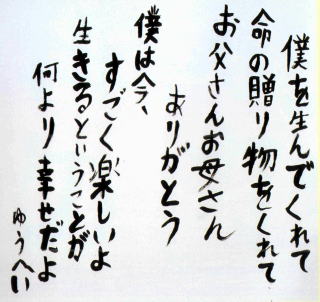 僕を生んでくれて
命の贈り物をくれて
お父さんお母さん
ありがとう
僕は今、
すごく楽しいよ
生きるということが
何より幸せだよ
ゆうへい